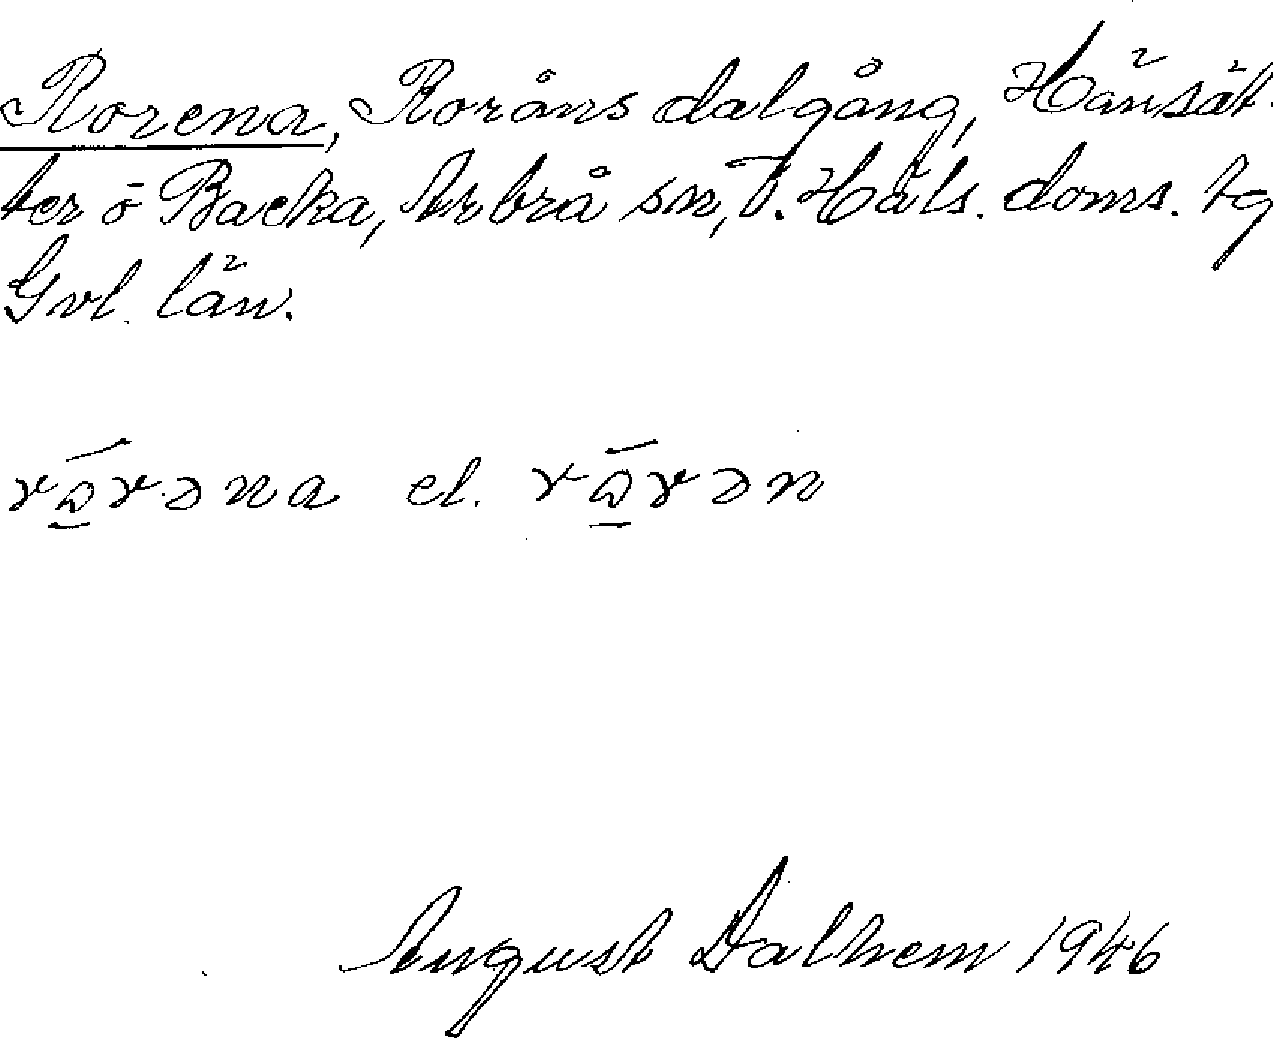 Rorena, Roråns dalgång, Hänsät-
ter ö Backa, Arbrå sn, V. Häls. doms. tg
Gvl. län.
el.
August Dalhem 1946